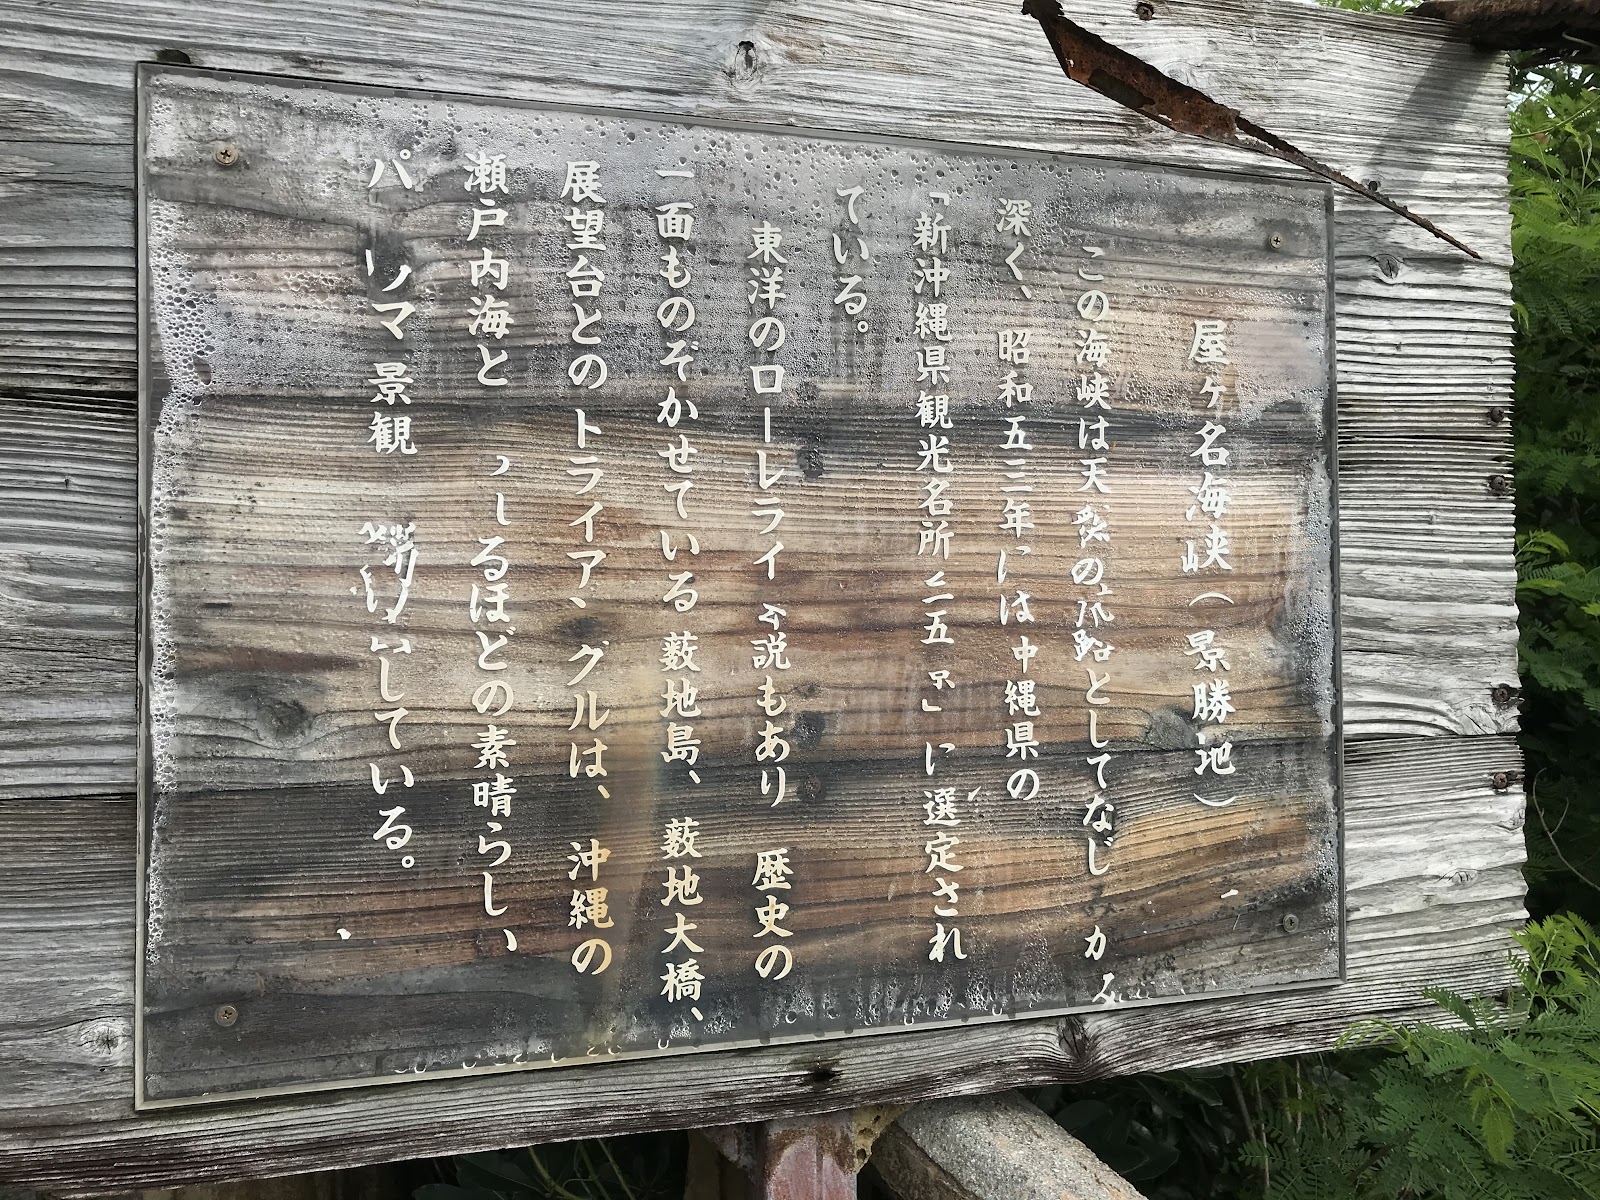 屋ヶ名海峡(景勝地)
この海峡は天然の航路としてなじみ
深く、昭和五三年には中縄県の
「新沖縄県観光名所二五」に選定され
ている。
東洋のローレライ説もあり 歴史の
一面ものぞかせている藪地島、藪地大橋、
展望台とのトライアングルは、沖縄の
瀬戸内海と るほどの素晴らしい
パ ラマ景観 している。